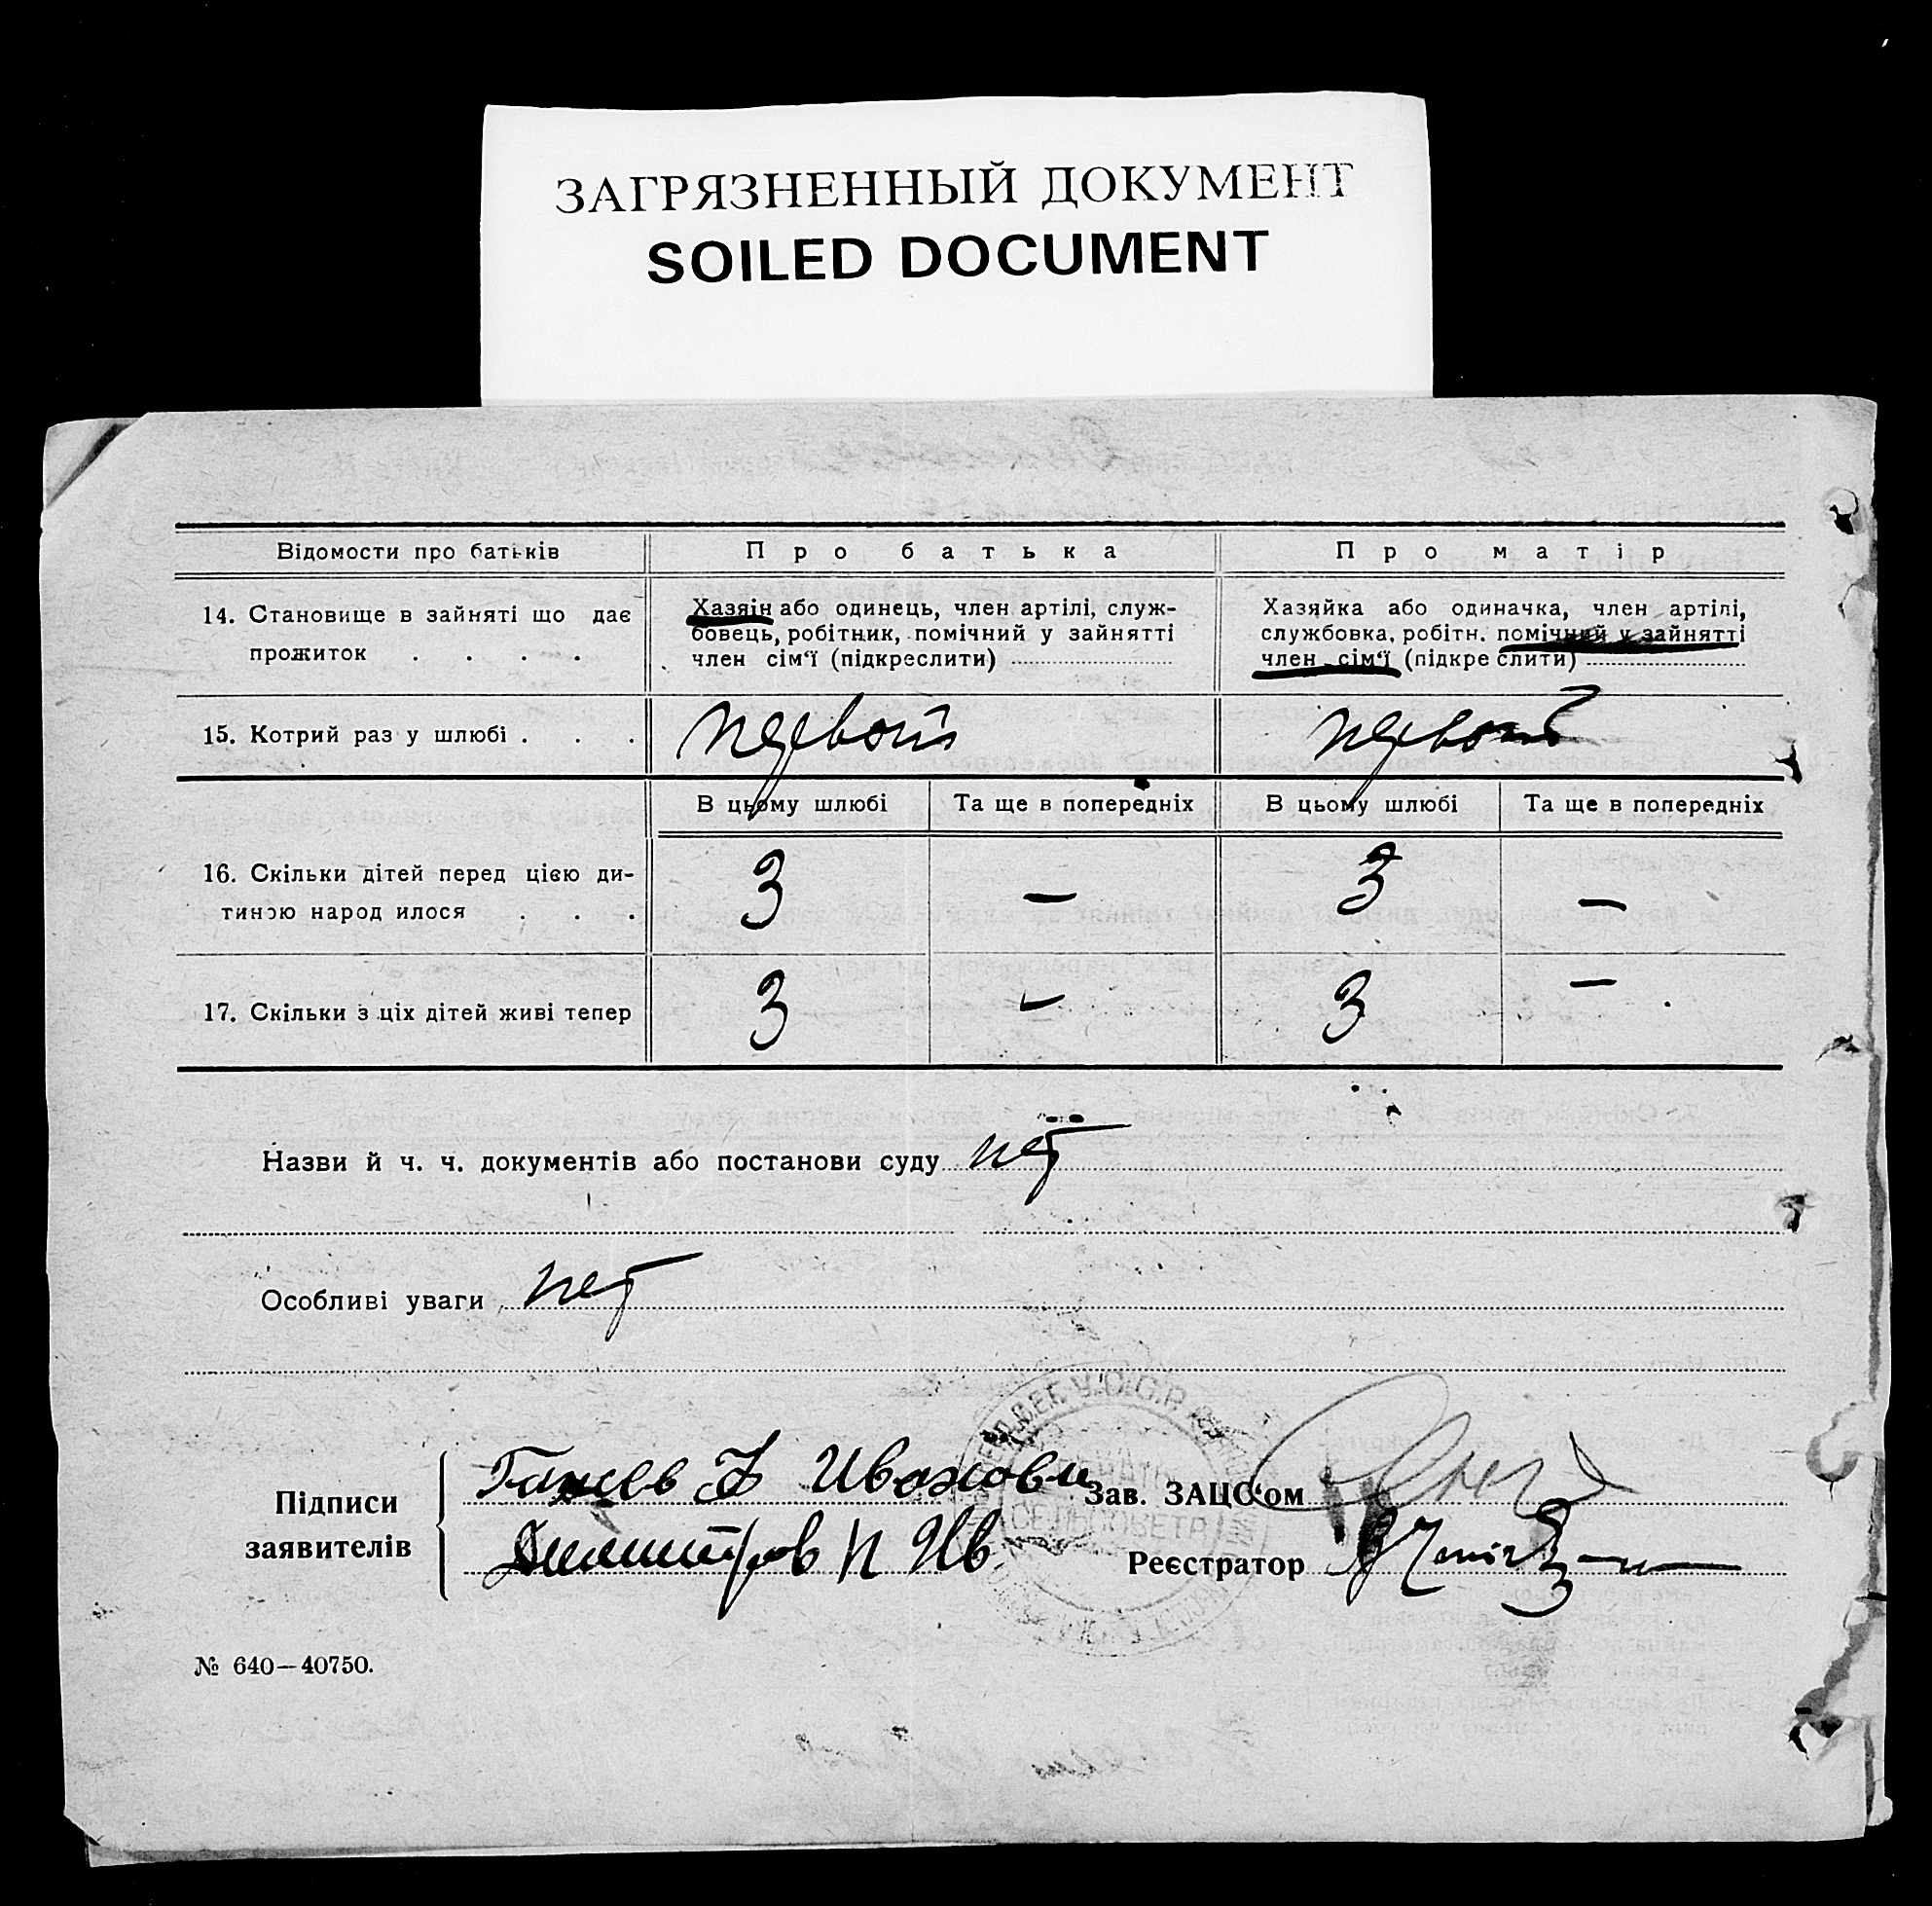 ЗАГРЯЗНЕННЫЙ ДОКУМЕНТ
SOILED DOCUMENT
Відомости про батьків
Про батька
Про матір
14. Становище в зайняті що дає
прожиток . . . .
Хазяін або одинець, член артілі, служ-
бовець, робітник, помічний у зайнятті
член сім'ї (підкреслити)
Хазяйка або одиначка, член артілі,
службовка, робітн. помічний у зайнятті
член сім'ї (підкреслити)
15. Котрий раз у шлюбі . . .
первой
первой
В цьому шлюбі
Та ще в попередніх
В цьому шлюбі
Та ще в попередніх
16. Скільки дітей перед цією ди-
тиною народилося . . .
3
—
3
—
17. Скільки з ціх дітей живі тепер
3
—
3
—
Назви й ч. ч. документів або постанови суду нет
Особливі уваги нет
У.С.С.Р.
СЕЛЬСОВЕТА
Підписи
заявителів
Ивонови
Димитров П Ив
Зав. ЗАЦС'ом
Реєстратор
№ 640—40750.